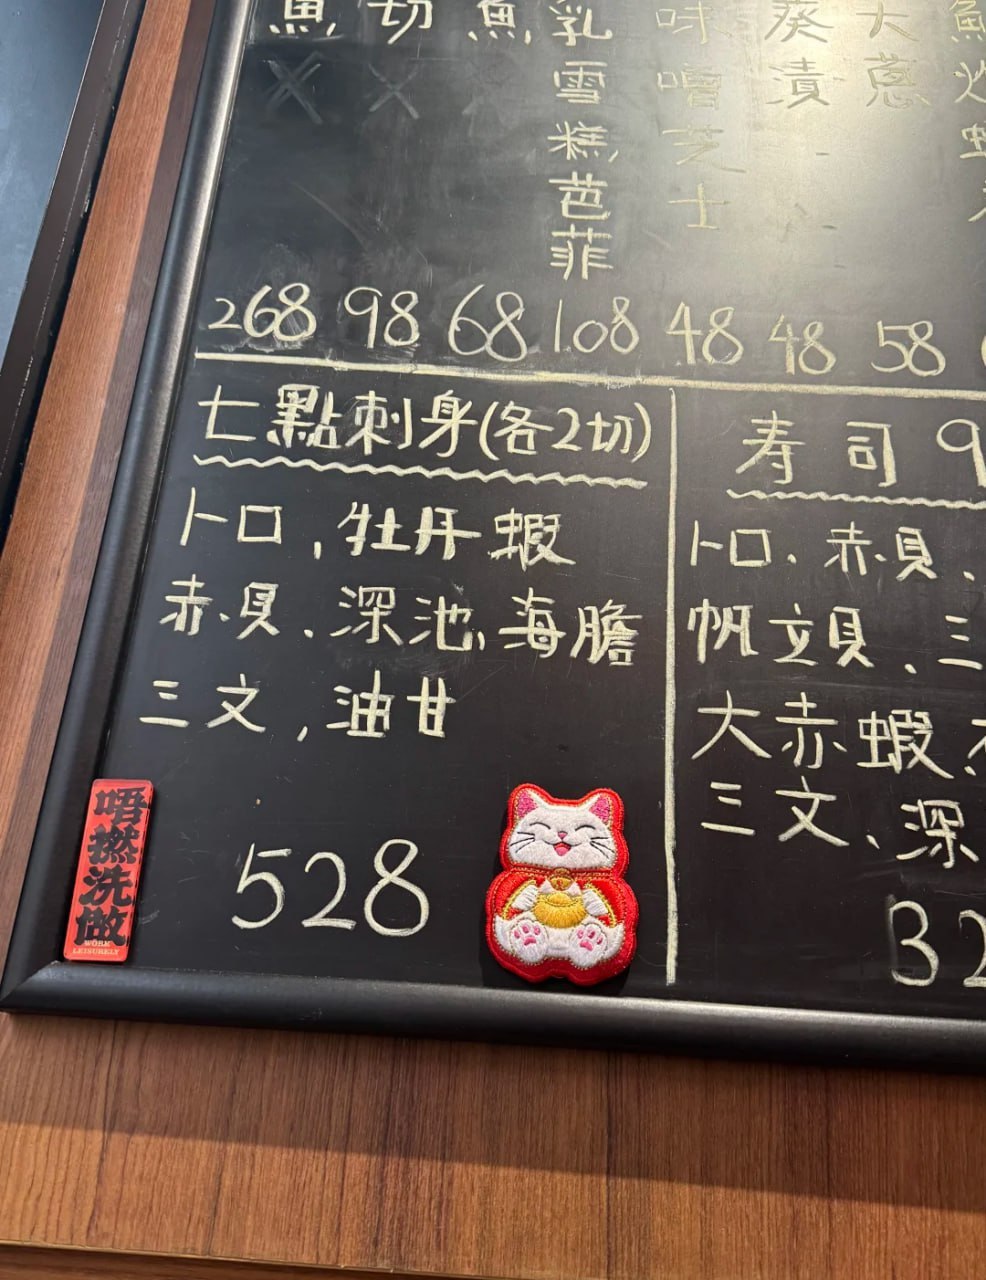 魚 切 魚 乳雪糕芭菲 味噌芝士 葵漬 大蔥
268 98 68 108 48 48 58
七點刺身(各2切)
卜口, 牡丹蝦
赤貝、深池、海膽
三文, 油甘
528
寿司 9
卜口、赤貝、
帆立貝、三
大赤蝦、
三文、深
32
唔撚洗做
WORK LEISURELY